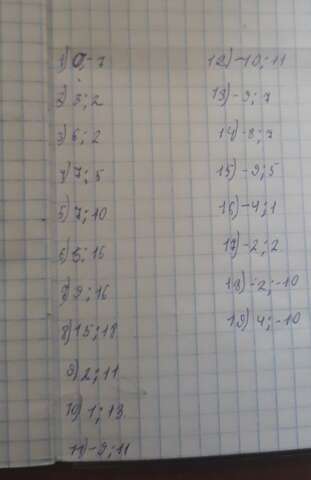 1) 0;-7
2) 3; 2
3) 6; 2
4) 7; 5
5) 7; 10
6) 5; 15
7) 9; 16
8) 15; 18
9) 2; 11
10) 1; 13
11) -9; 11
12) -10; 11
13) -9; 7
14) -8; 7
15) -9; 5
16) -4; 1
17) -2; 2
18) -2; -10
19) 4; -10